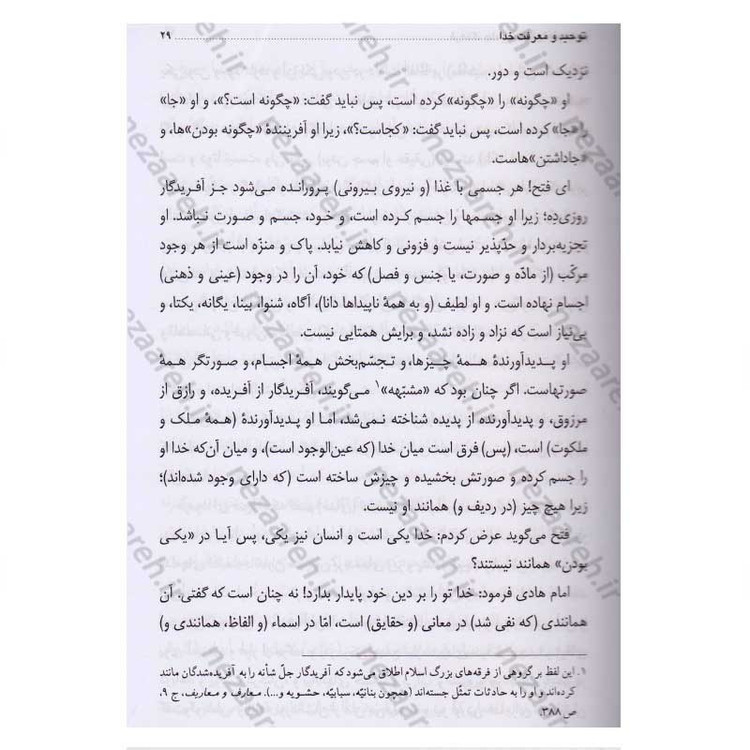 توحید و معرفت خدا ........ ۲۹
نزدیک است و دور.
او «چگونه» را «چگونه» کرده است، پس نباید گفت: «چگونه است؟»، و او «جا»
را «جا» کرده است، پس نباید گفت: «کجاست؟»، زیرا او آفرینندهٔ «چگونه بودن»ها، و
«جاداشتن»هاست.
ای فتح! هر جسمی با غذا (و نیروی بیرونی) پرورانده می‌شود جز آفریدگار
روزی‌دِه؛ زیرا او جسمها را جسم کرده است، و خود، جسم و صورت نباشد. او
تجزیه‌بردار و حدّپذیر نیست و فزونی و کاهش نیابد. پاک و منزّه است از هر وجود
مرکّب (از مادّه و صورت، یا جنس و فصل) که خود، آن را در وجود (عینی و ذهنی)
اجسام نهاده است. و او لطیف (و به همهٔ ناپیداها دانا)، آگاه، شنوا، بینا، یگانه، یکتا، و
بی‌نیاز است که نزاد و زاده نشد، و برایش همتایی نیست.
او پدیدآورندهٔ همهٔ چیزها، و تجسّم‌بخش همهٔ اجسام، و صورتگر همهٔ
صورتهاست. اگر چنان بود که «مشبّهه»۱ می‌گویند، آفریدگار از آفریده، و رازق از
مرزوق، و پدیدآورنده از پدیده شناخته نمی‌شد، اما او پدیدآورندهٔ (همهٔ ملک و
ملکوت) است، (پس) فرق است میان خدا (که عین‌الوجود است)، و میان آن‌که خدا او
را جسم کرده و صورتش بخشیده و چیزش ساخته است (که دارای وجود شده‌اند)؛
زیرا هیچ چیز (در ردیف و) همانند او نیست.
فتح می‌گوید عرض کردم: خدا یکی است و انسان نیز یکی، پس آیا در «یکی
بودن» همانند نیستند؟
امام هادی فرمود: خدا تو را بر دین خود پایدار بدارد! نه چنان است که گفتی. آن
همانندی (که نفی شد) در معانی (و حقایق) است، امّا در اسماء (و الفاظ، همانندی و)
۱. این لفظ بر گروهی از فرقه‌های بزرگ اسلام اطلاق می‌شود که آفریدگار جلّ شأنه را به آفریده‌شدگان مانند
کرده‌اند و او را به حادثات تمثّل جسته‌اند (همچون بنانیّه، سبابیّه، حشویه و...). معارف و معاریف، ج ۹،
ص ۳۸۸.
nezaareh.ir